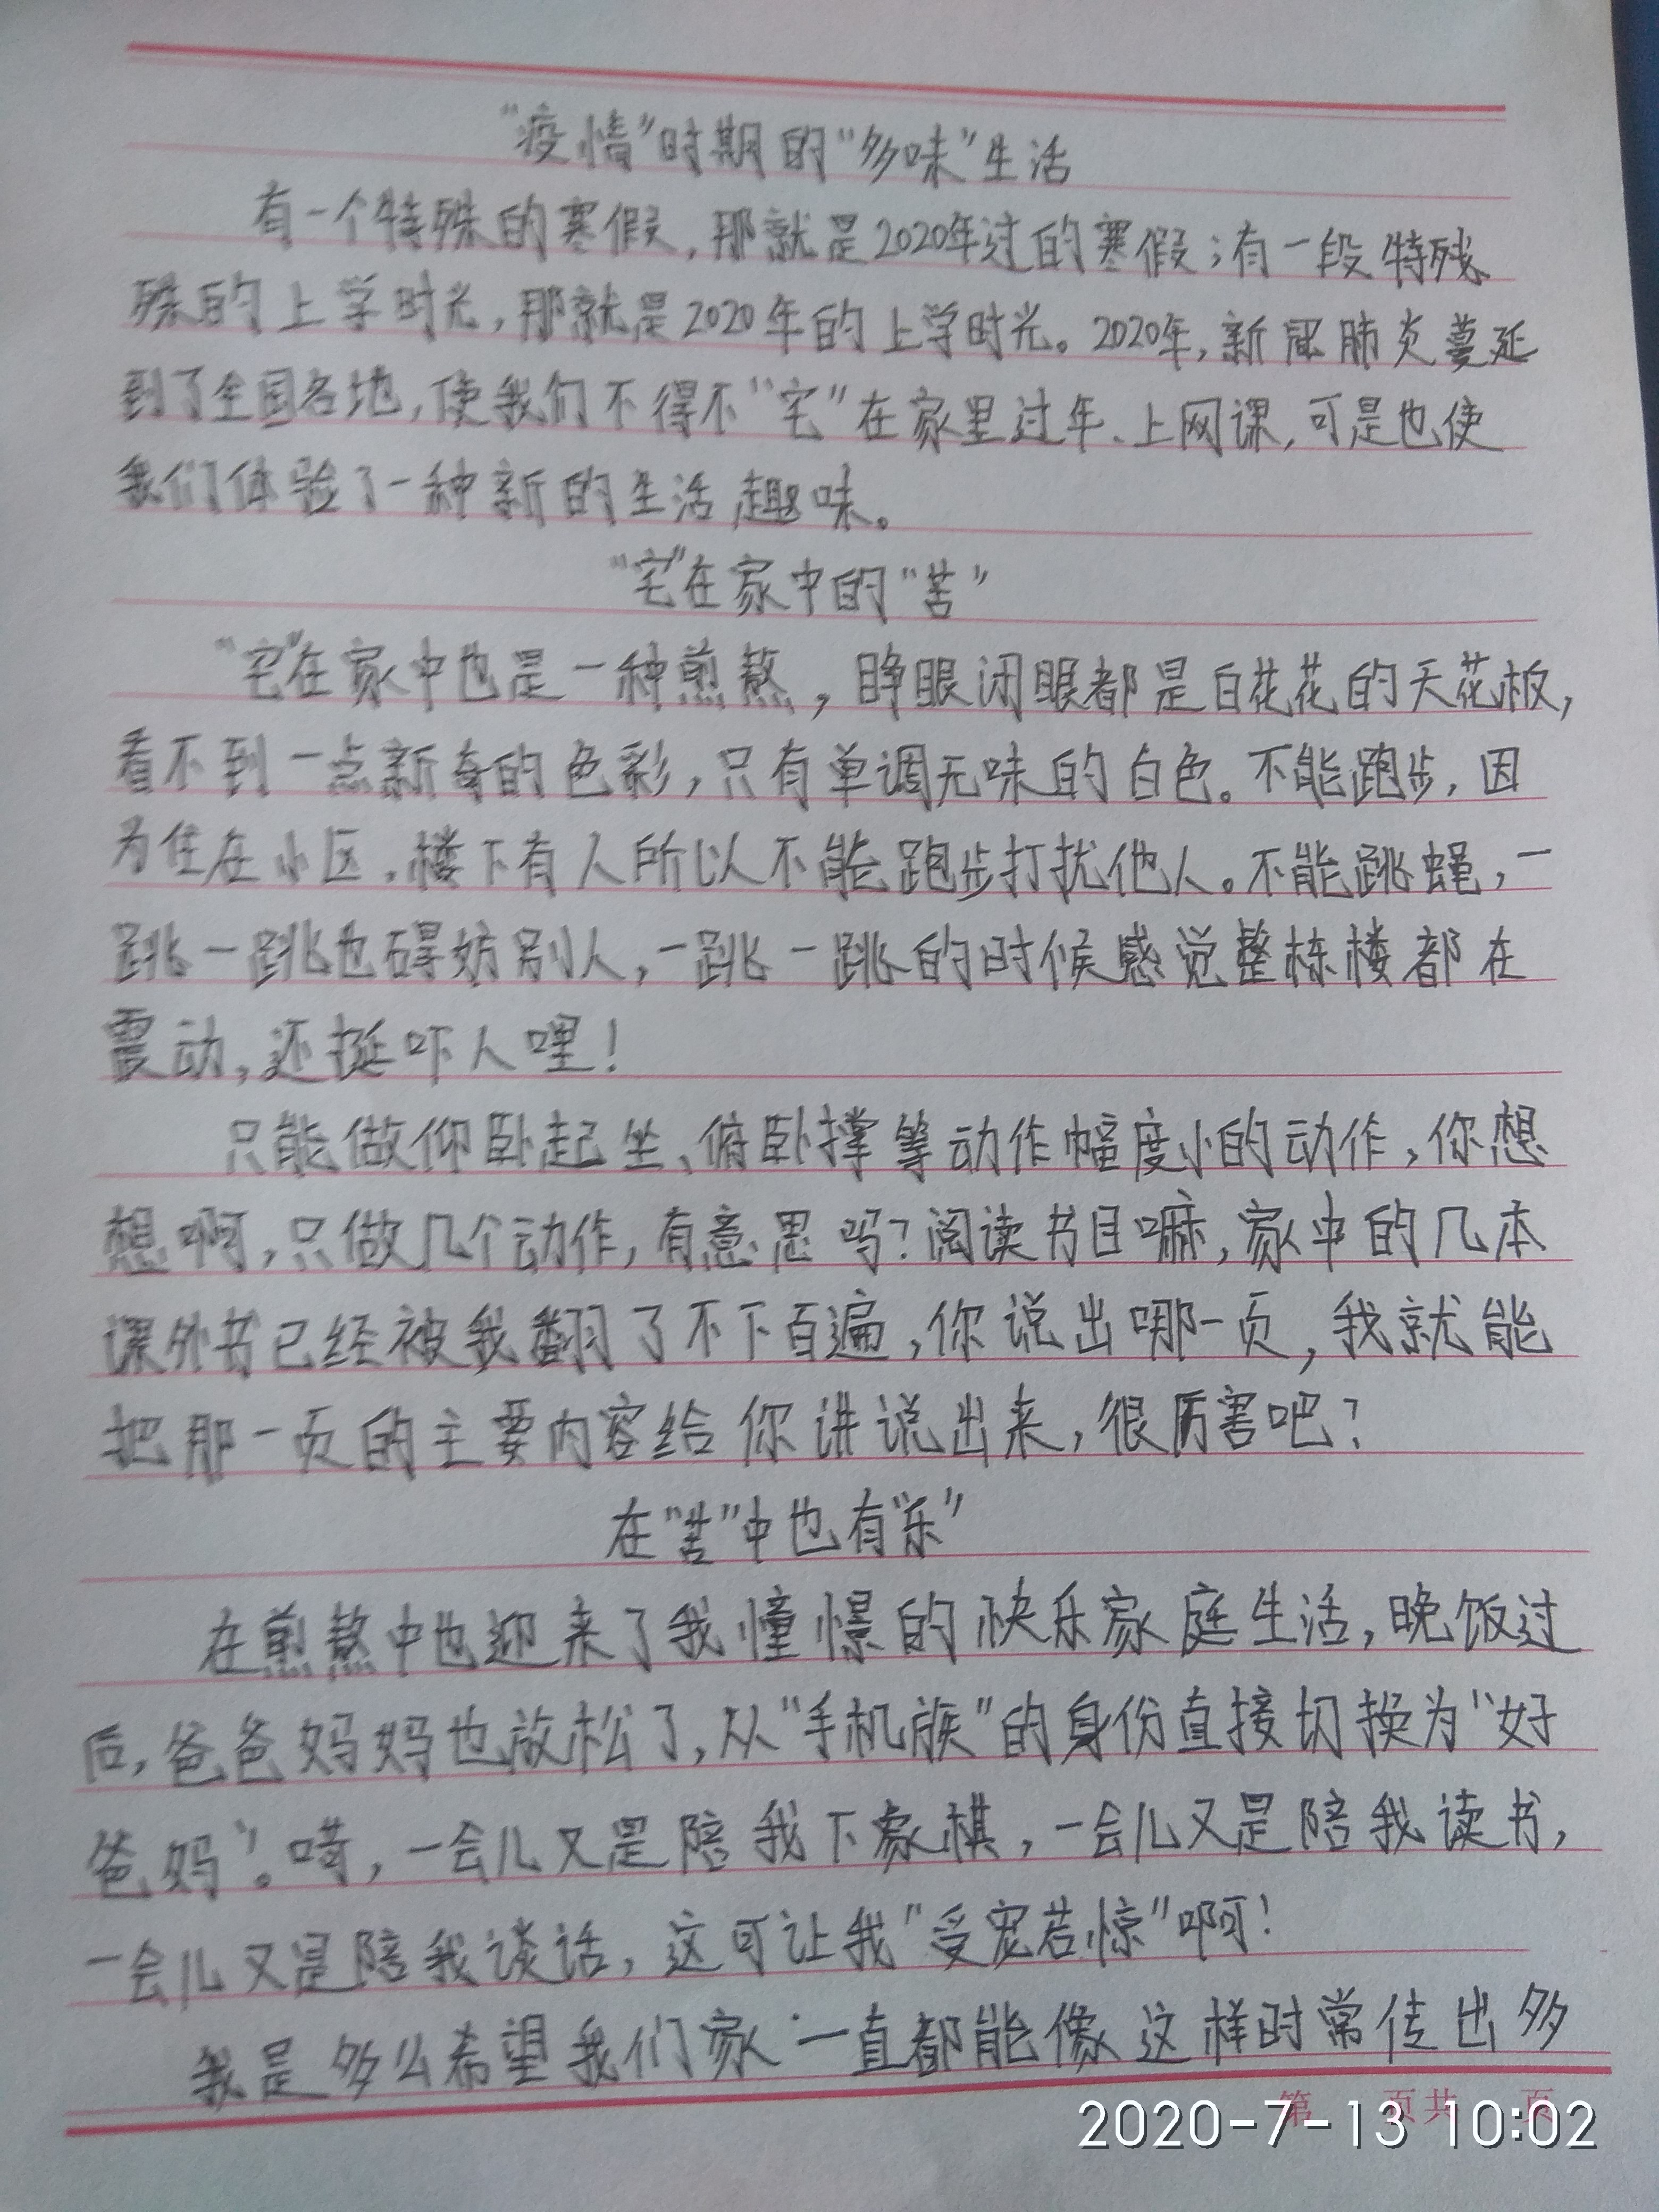 “疫情”时期的“多味”生活
有一个特殊的寒假,那就是2020年过的寒假;有一段特残
殊的上学时光,那就是2020年的上学时光。2020年,新冠肺炎蔓延
到了全国各地,使我们不得不“宅”在家里过年、上网课,可是也使
我们体验了一种新的生活趣味。
“宅”在家中的“苦”
“宅”在家中也是一种煎熬,睁眼闭眼都是白花花的天花板,
看不到一点新奇的色彩,只有单调无味的白色。不能跑步,因
为住在小区,楼下有人所以不能跑步打扰他人。不能跳蝇,一
跳一跳也碍妨别人,一跳一跳的时候感觉整栋楼都在
震动,还挺吓人哩!
只能做仰卧起坐、俯卧撑等动作幅度小的动作,你想
想啊,只做几个动作,有意思吗?阅读书目嘛,家中的几本
课外书已经被我翻了不下百遍,你说出哪一页,我就能
把那一页的主要内容给你讲说出来,很厉害吧?
在“苦”中也有“乐”
在煎熬中也迎来了我憧憬的快乐家庭生活,晚饭过
后,爸爸妈妈也放松了,从“手机族”的身份直接切换为“好
爸妈”。嗬,一会儿又是陪我下象棋,一会儿又是陪我读书,
一会儿又是陪我谈话,这可让我“受宠若惊”啊!
我是多么希望我们家一直都能像这样时常传出多
第 页共 页
2020-7-13 10:02